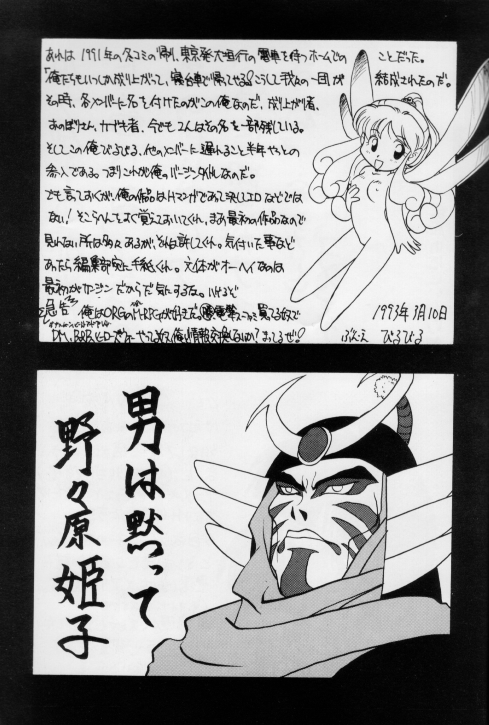 あれは1991年の冬コミの帰り、東京発大垣行の電車を待つホームでのことだった。
「俺たちもいつしか成り上がって、寝台車で帰ってやる!」こうして我々の一団が結成されたのだ。
その時、各メンバーに名を付けたのがこの俺なのだ。成り上がり者、
あのぼりさん、カブキ者、今でも2人はその名を一部残している。
そしてこの俺びるびる、他のメンバーに遅れること半年やっとの
参入である。つまりこれが俺のバージン作なのだ。
でも言っておくが、俺の作品はHマンガであって決してエロなどでは
ない!そこらへんをよく覚えておいてくれ。まあ最初の作品なので
見れない所は多々あるが、それは許してくれ。気付いた事など
あったら編集部宛に手紙くれ。文体がオーヘイなのは
最初がカンジンだからだ気にするな。
俺はORGのM-RPGが好きだ。
情報交換しないか?まってるぜ!
1993年3月10日
びるびる
男は黙って
野々原姫子